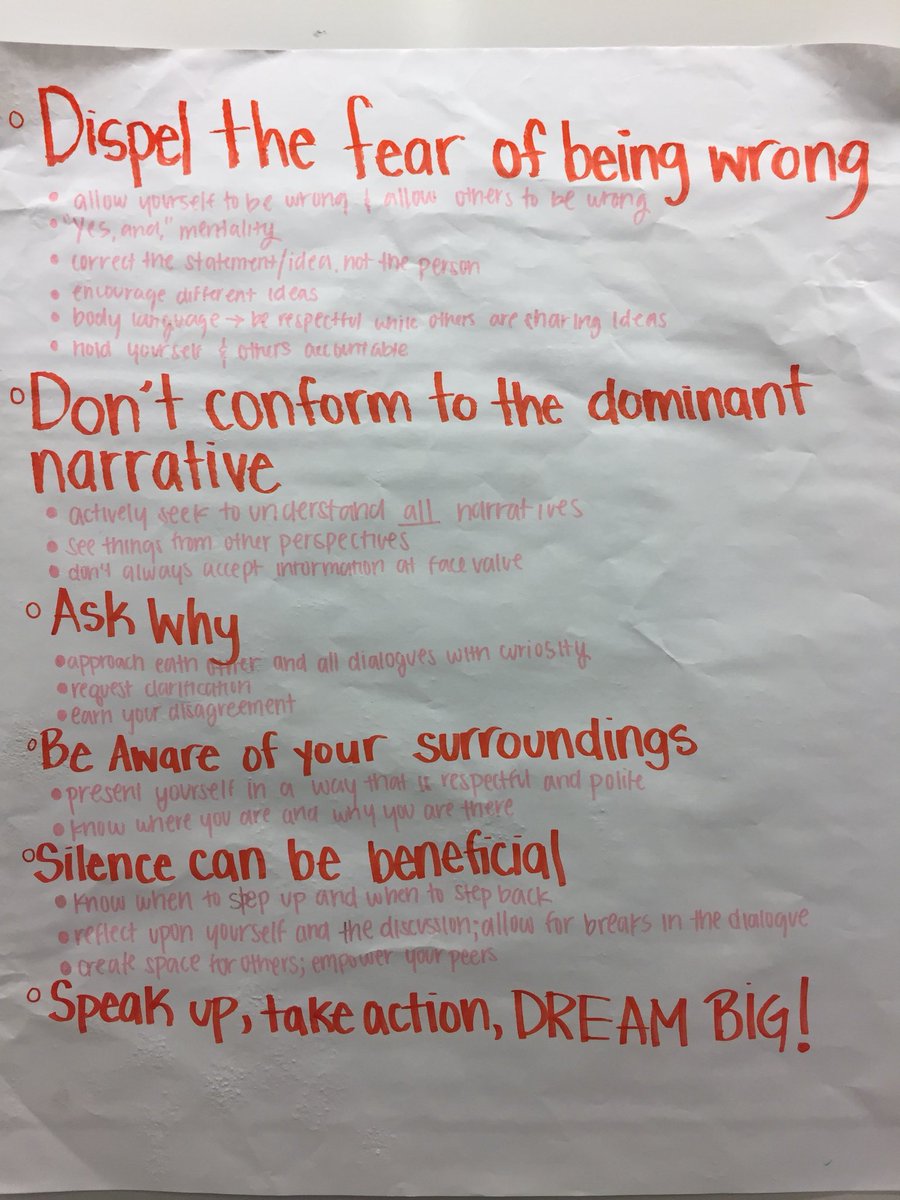 Dispel the fear of being wrong
• allow yourself to be wrong & allow others to be wrong
• "Yes, and," mentality
• correct the statement/idea, not the person
• encourage different ideas
• body language → be respectful while others are sharing ideas
• hold yourself & others accountable
Don't conform to the dominant
narrative
• actively seek to understand all narratives
• see things from other perspectives
• don't always accept information at face value
Ask Why
• approach each other and all dialogues with curiosity
• request clarification
• earn your disagreement
Be Aware of your surroundings
• present yourself in a way that is respectful and polite
• know where you are and why you are there
Silence can be beneficial
• Know when to step up and when to step back
• reflect upon yourself and the discussion; allow for breaks in the dialogue
• create space for others; empower your peers
Speak up, take action, DREAM BIG!